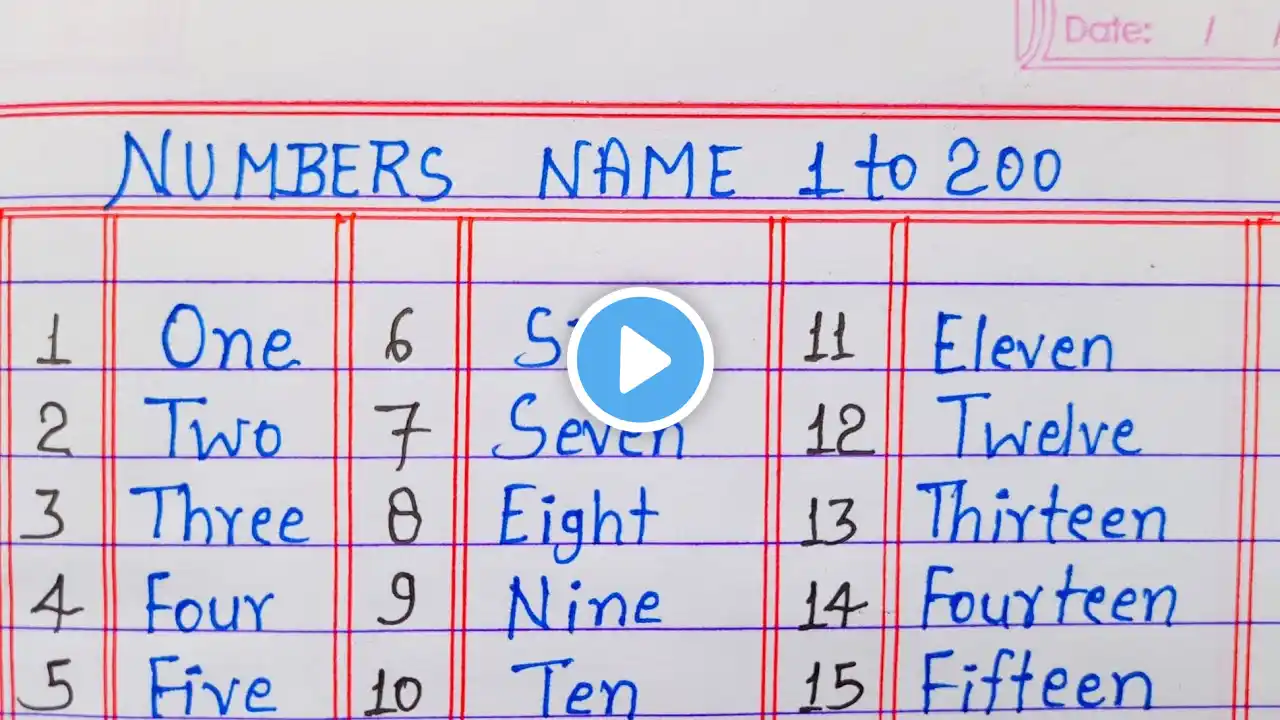 Date: / /
NUMBERS NAME 1 to 200
1 One 6 11 Eleven
2 Two 7 Seven 12 Twelve
3 Three 8 Eight 13 Thirteen
4 Four 9 Nine 14 Fourteen
5 Five 10 Ten 15 Fifteen